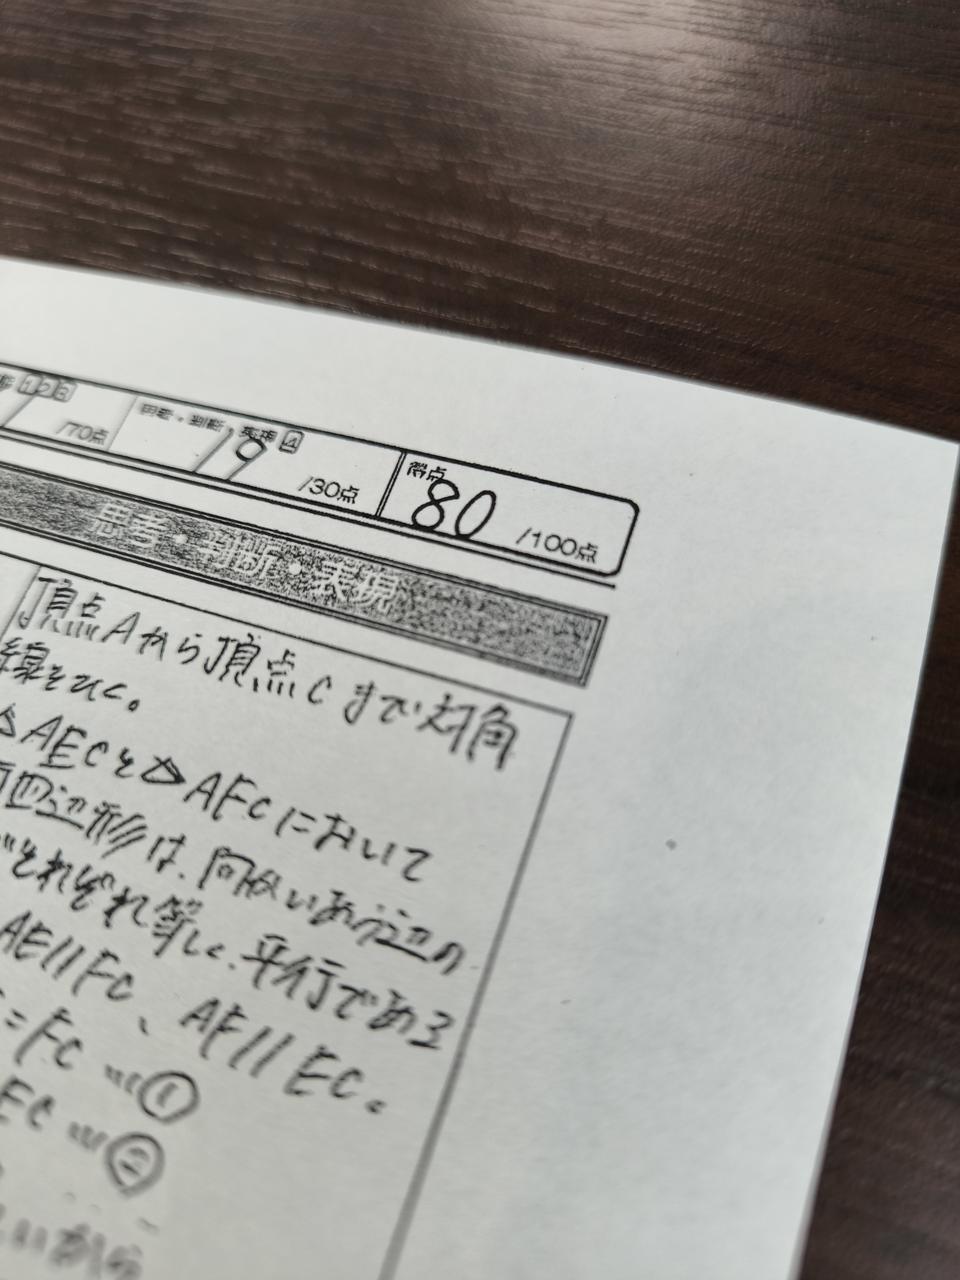 123
/70点
思考・判断・表現 4
19 /30点
得点
80 /100点
思考・判断・表現
頂点Aから頂点Cまで対角
線をひく。
△AECと△AFCにおいて
四辺形は、向かいあう辺の
それぞれ等しく、平行である
AE//FC、AF//EC。
=FC …①
EC …②